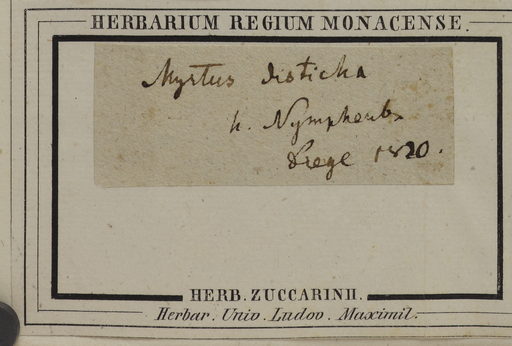 HERBARIUM REGIUM MONACENSE.
Myrtus disticha
h. Nymphenb.
1820.
HERB. ZUCCARINII.
Herbar. Univ. Ludov. Maximil.